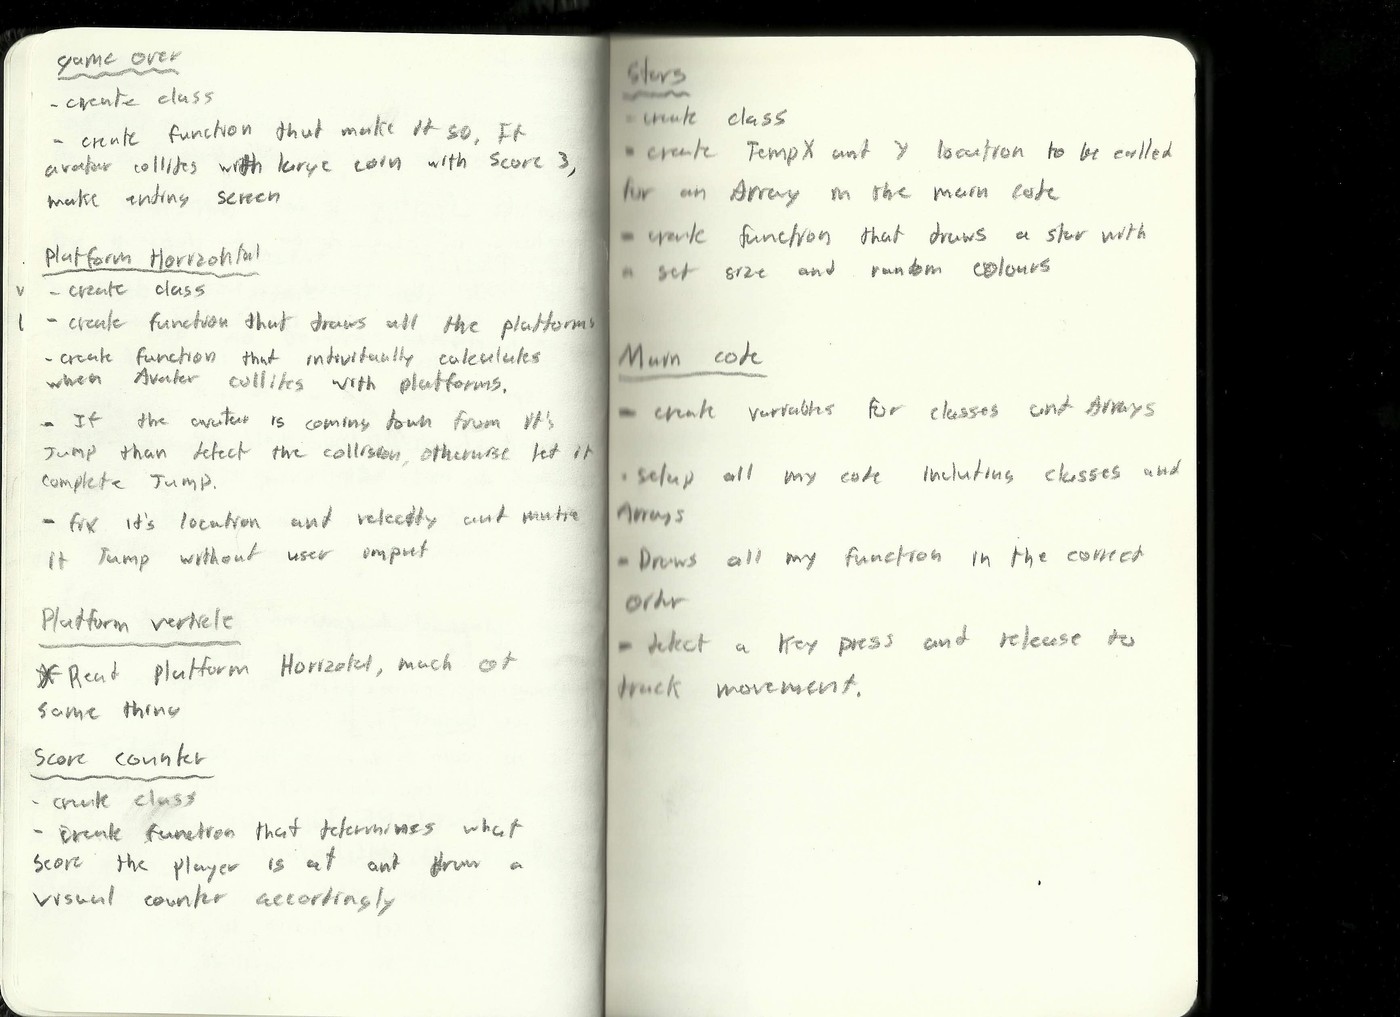 game over
- create class
- create function that make it so, If
avatar collides with large coin with Score 3,
make ending screen
Platform Horizontal
v - create class
- create function that draws all the platforms
- create function that individually calculates
when Avatar collides with platforms.
- If the avatar is coming down from it's
Jump than detect the collision, otherwise let it
complete Jump.
- fix it's location and velocity and make
it Jump without user
Platform verticle
Read platform Horizotal, much ot
same thing
Score counter
- create class
- create function that determines what
score the player is at and draw a
visual counter accordingly
Stars
- create class
- create TempX and Y location to be called
for an Array in the main code
- create function that draws a star with
a set size and random colours
Main code
- create variables for classes and Arrays
. setup all my code including classes and
Arrays
- Draws all my function in the correct
order
- detect a Key press and release to
track movement.